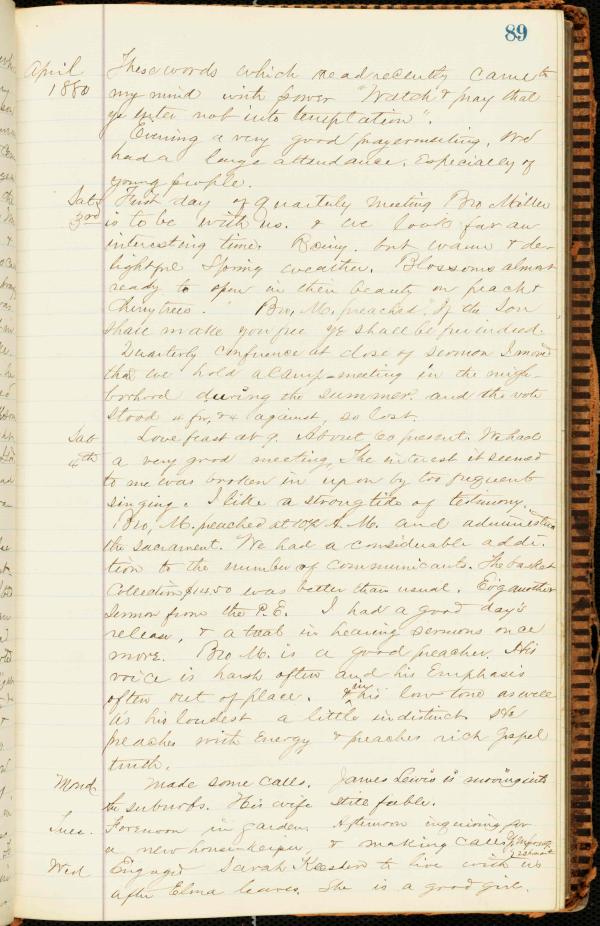 89
April 1880
These words which read recently came to
my mind with power "Watch & pray that
ye enter not into temptation".
Evening a very good prayermeeting. We
had a large attendance. Especially of
young people.
Sat 3rd First day of quarterly meeting Bro Miller
is to be with us. & we look for an
interesting time. but warm & de-
lightful Spring weather. Blossoms almost
ready to open in their beauty on peach &
cherry trees. Bro, M. preached, "If the Son
shall make you free ye shall be free indeed.
Quarterly conference at close of sermon I moved
that we hold a Camp-meeting in the neigh
borhood during the summer. and the vote
stood 4 for, & 4 against, so lost.
Sab 4th Love feast at 9. About 60 present. We had
a very good meeting, The interest it seemed
to me was broken in upon by too frequent
singing. I like a strong tide of testimony.
Bro, M. preached at 10½ A.M. and administered
the sacrament. We had a considerable addi-
tion to the number of communicants. The basket
Collection $14.50 was better than usual. Eve'g another
sermon from the P.E. I had a good day's
release, & a treat in hearing sermons once
more. Bro M. is a good preacher. His
voice is harsh often and his Emphasis
often out of place. & in his low tone as well
as his loudest a little indistinct. He
preaches with Energy & preaches rich Gospel
truth.
Mond, Made some calls. James Lewis is moving into
the suburbs. His wife still feeble.
Tues. Forenoon in garden Afternoon inquiring for
a new housekeeper, & making calls
Wed Engaged Sarah to live with us
after Elma leaves. She is a good girl.